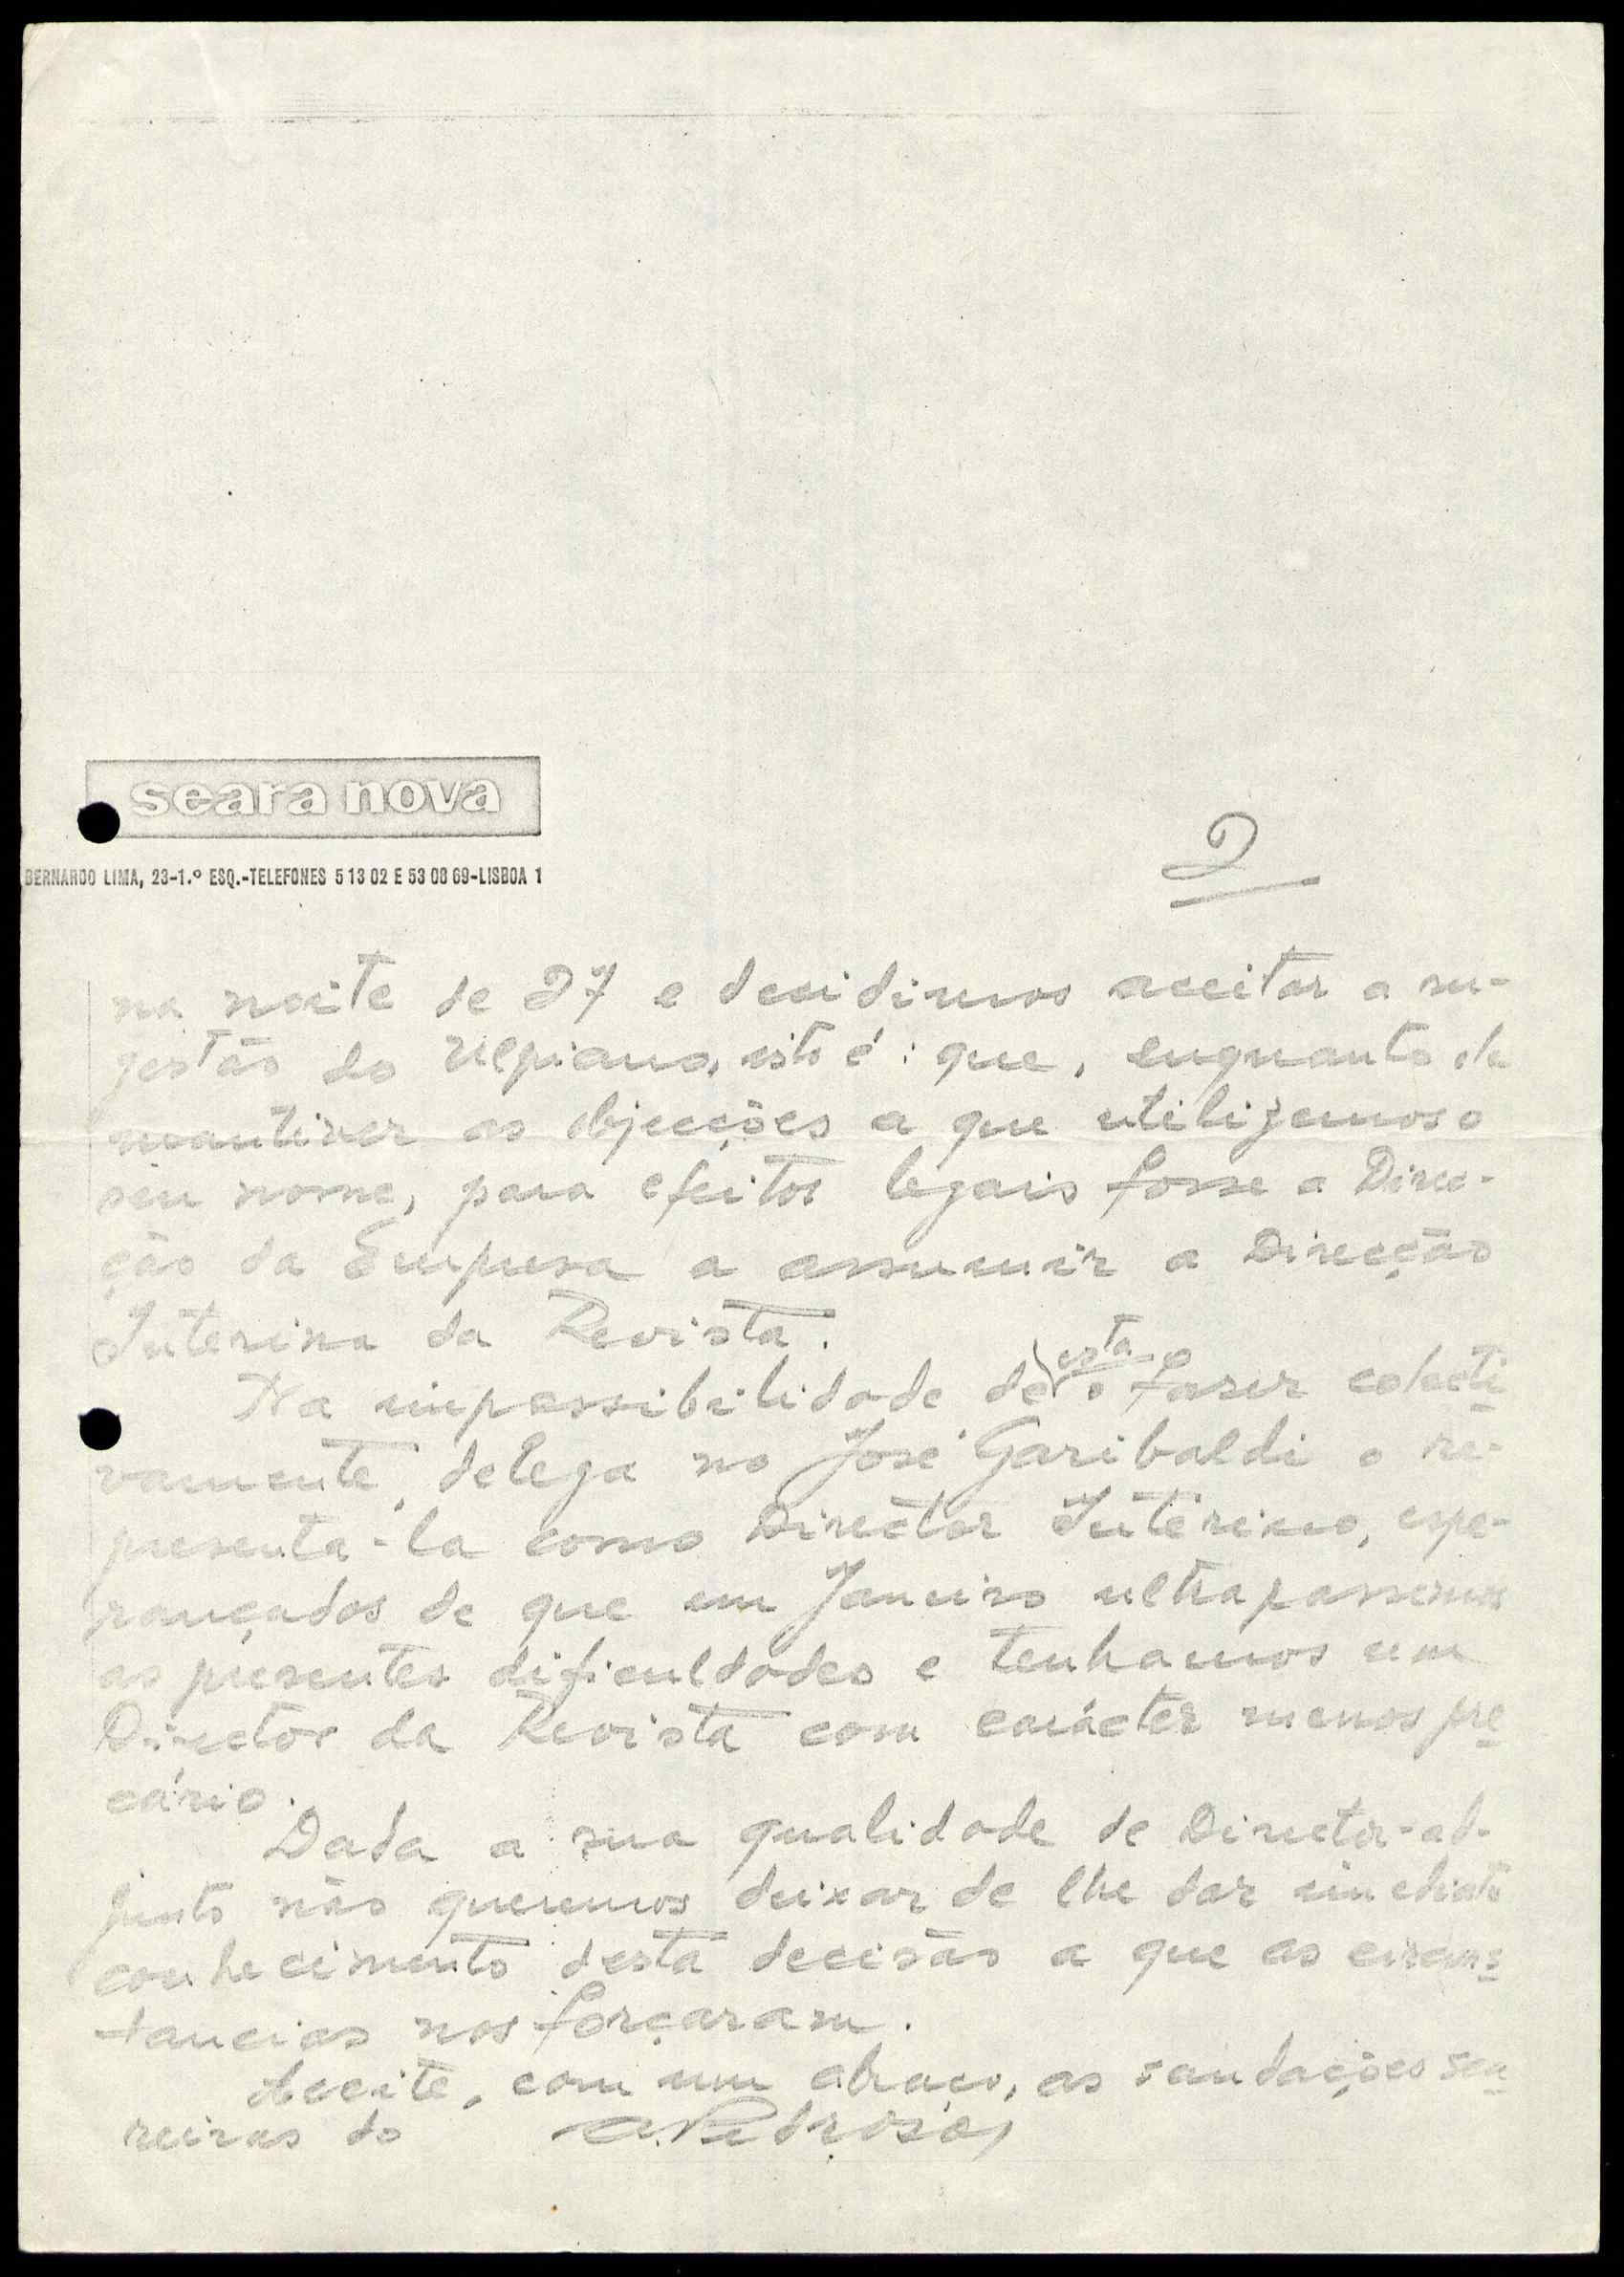 seara nova
BERNARDO LIMA, 23-1.º ESQ.-TELEFONES 5 13 02 E 53 08 69-LISBOA 1
2
na noite de 27 e decidimos aceitar a su-
gestão do Ulpiano, isto é: que, enquanto ele
mantiver as objecções a que utilizemos o
seu nome, para efeitos legais fosse a Direc-
ção da Empresa a assumir a Direcção
Interina da Revista.
Na impossibilidade de esta o fazer colecti
vamente, delega no José Garibaldi o re-
presentá-la como Director Interino, espe-
rançados de que em Janeiro ultrapassemos
as presentes dificuldades e tenhamos um
Director da Revista com carácter menos pre
cário.
Dada a sua qualidade de Director-ad-
junto não queremos deixar de lhe dar imediato
conhecimento desta decisão a que as circuns
tancias nos forçaram.
Aceite, com um abraço, as saudações sea
reiras do A. Pedrosa